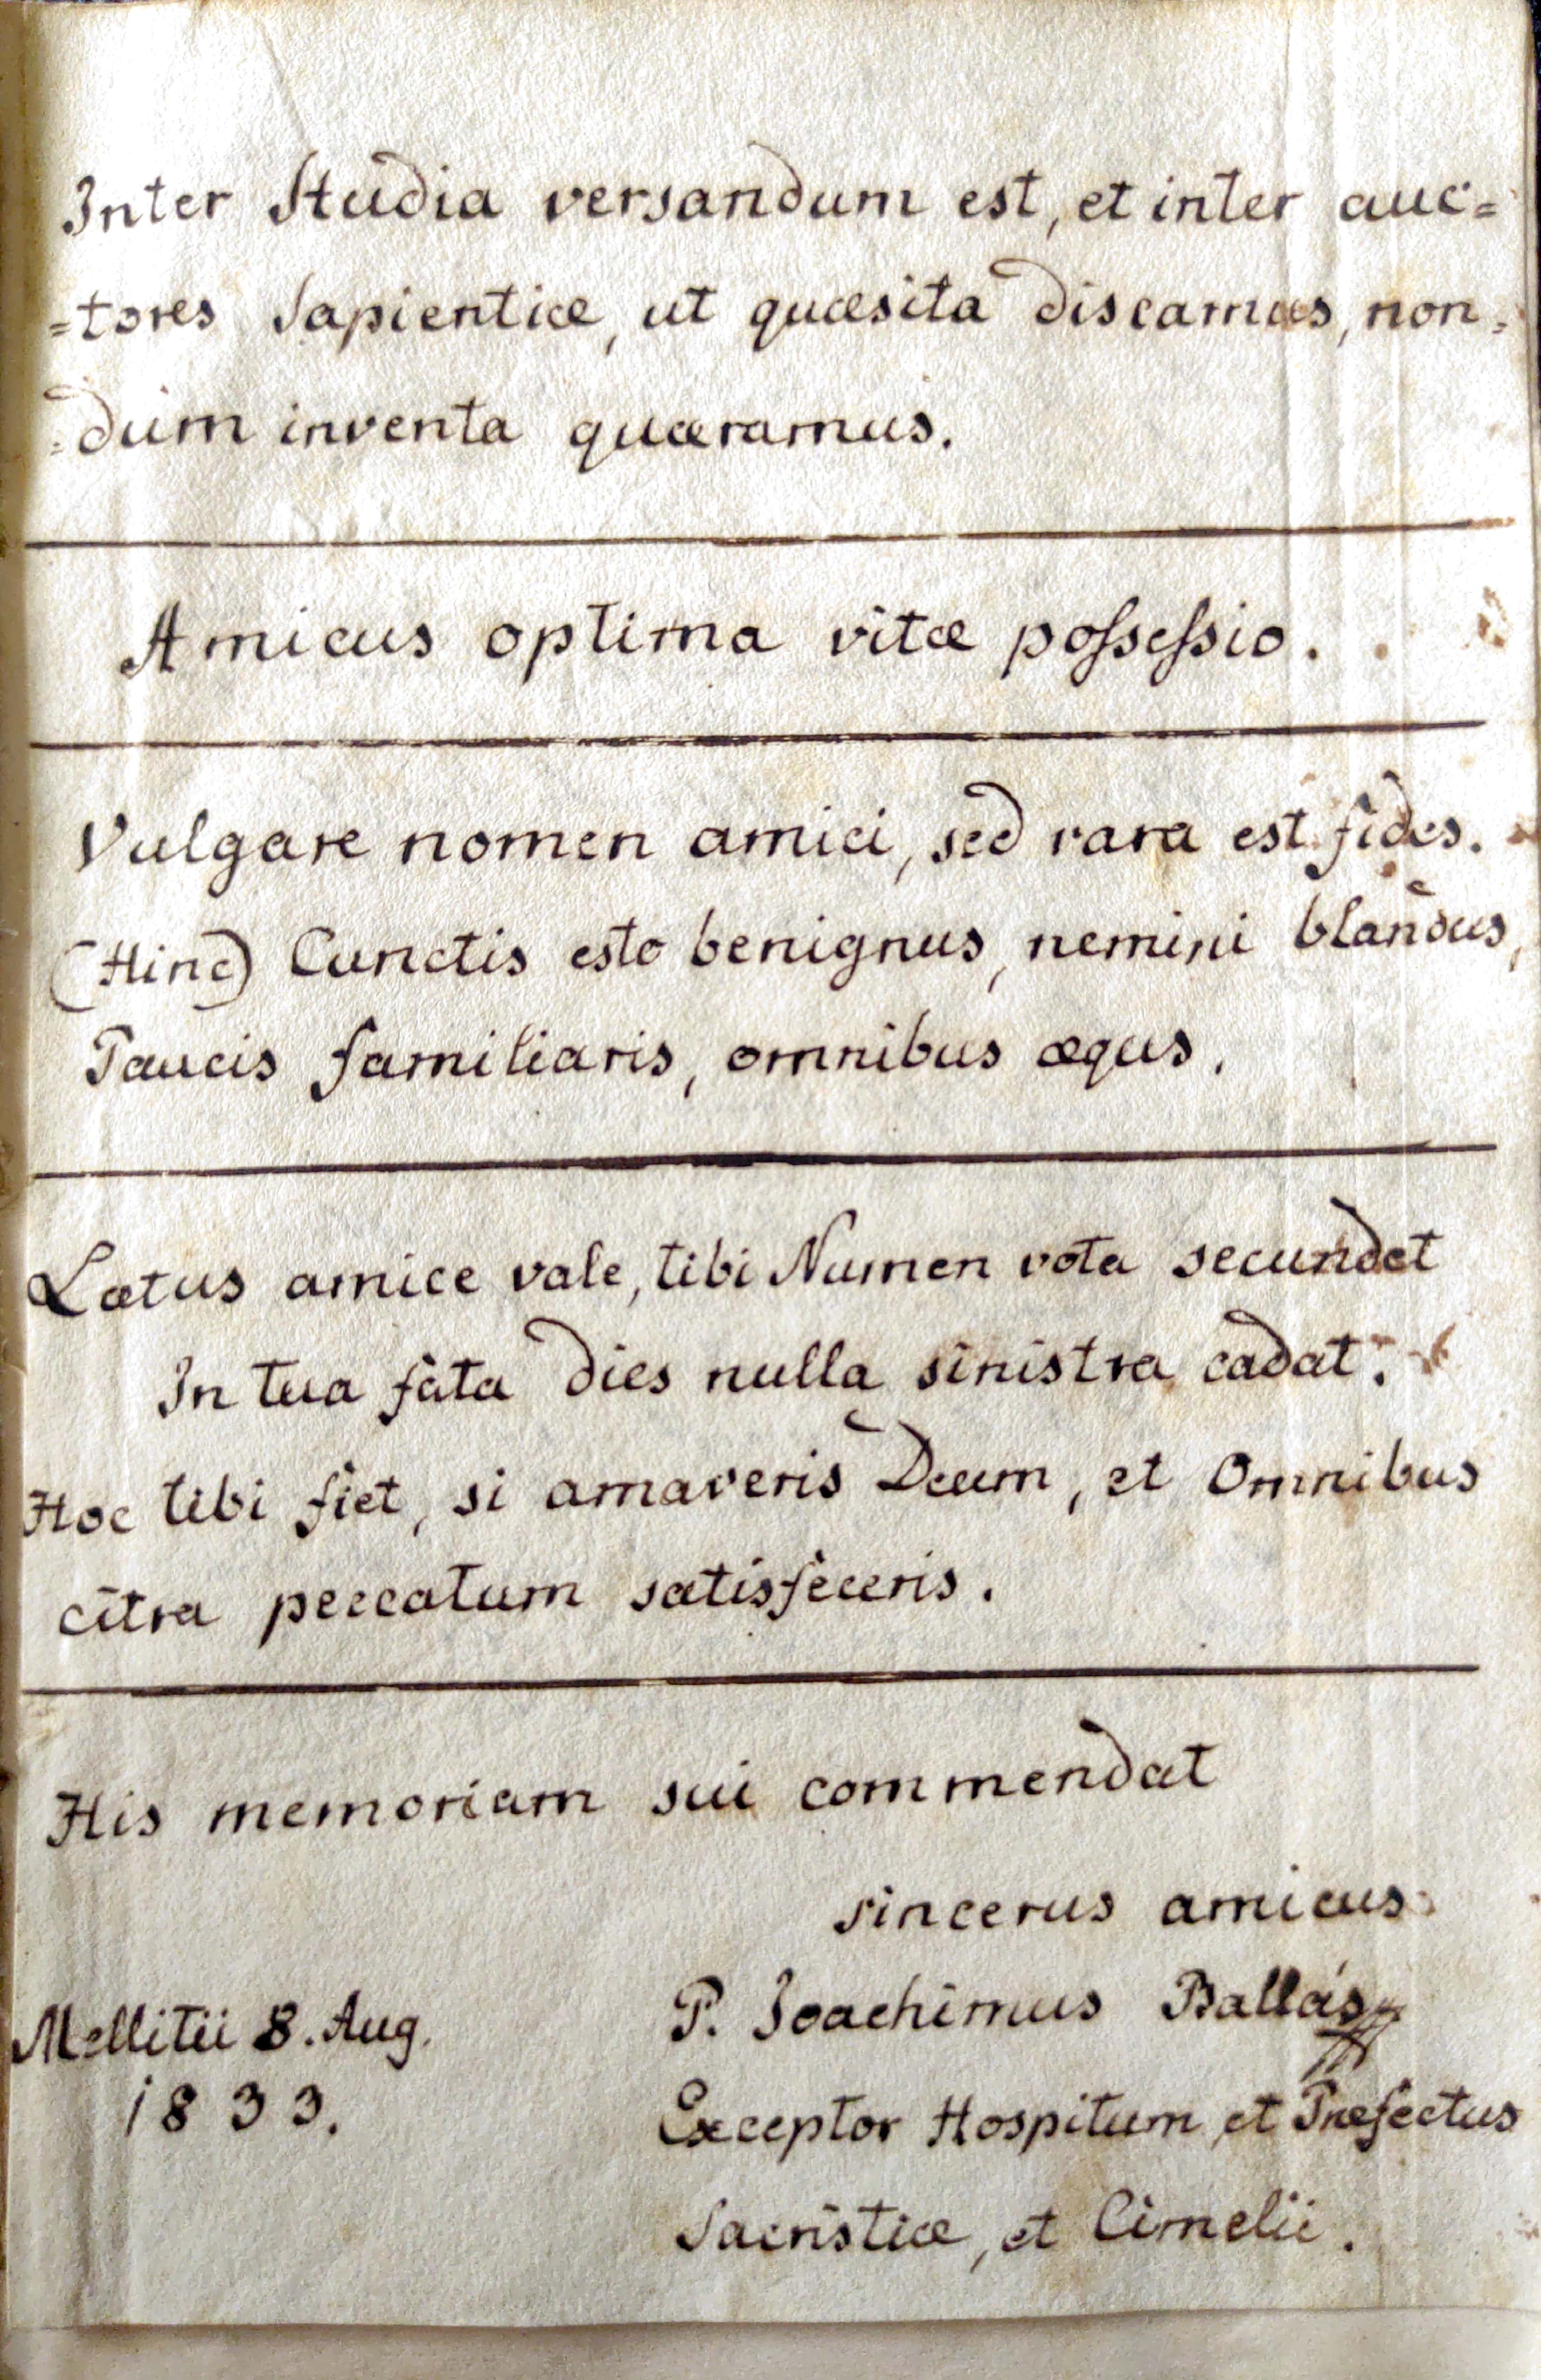 Inter Studia versandum est, et inter auc=
=tores Sapientiæ, ut quæsita discamus, non=
=dum inventa quæramus.
Amicus optima vitæ possessio.
Vulgare nomen amici, sed rara est fides.
(Hinc) Cunctis esto benignus, nemini blandus,
Paucis familiaris, omnibus æqus.
Lætus amice vale, tibi Numen vota secundet
In tua fata dies nulla sinistra cadat.
Hoc tibi fiet, si amaveris Deum, et Omnibus
citra peccatum satisfeceris.
His memoriam sui commendat
sincerus amicus
P. Joachimus Ballás
Mellitii 8. Aug.
1833.
Exceptor Hospitum et Præfectus
Sacristiæ, et Cimelii.